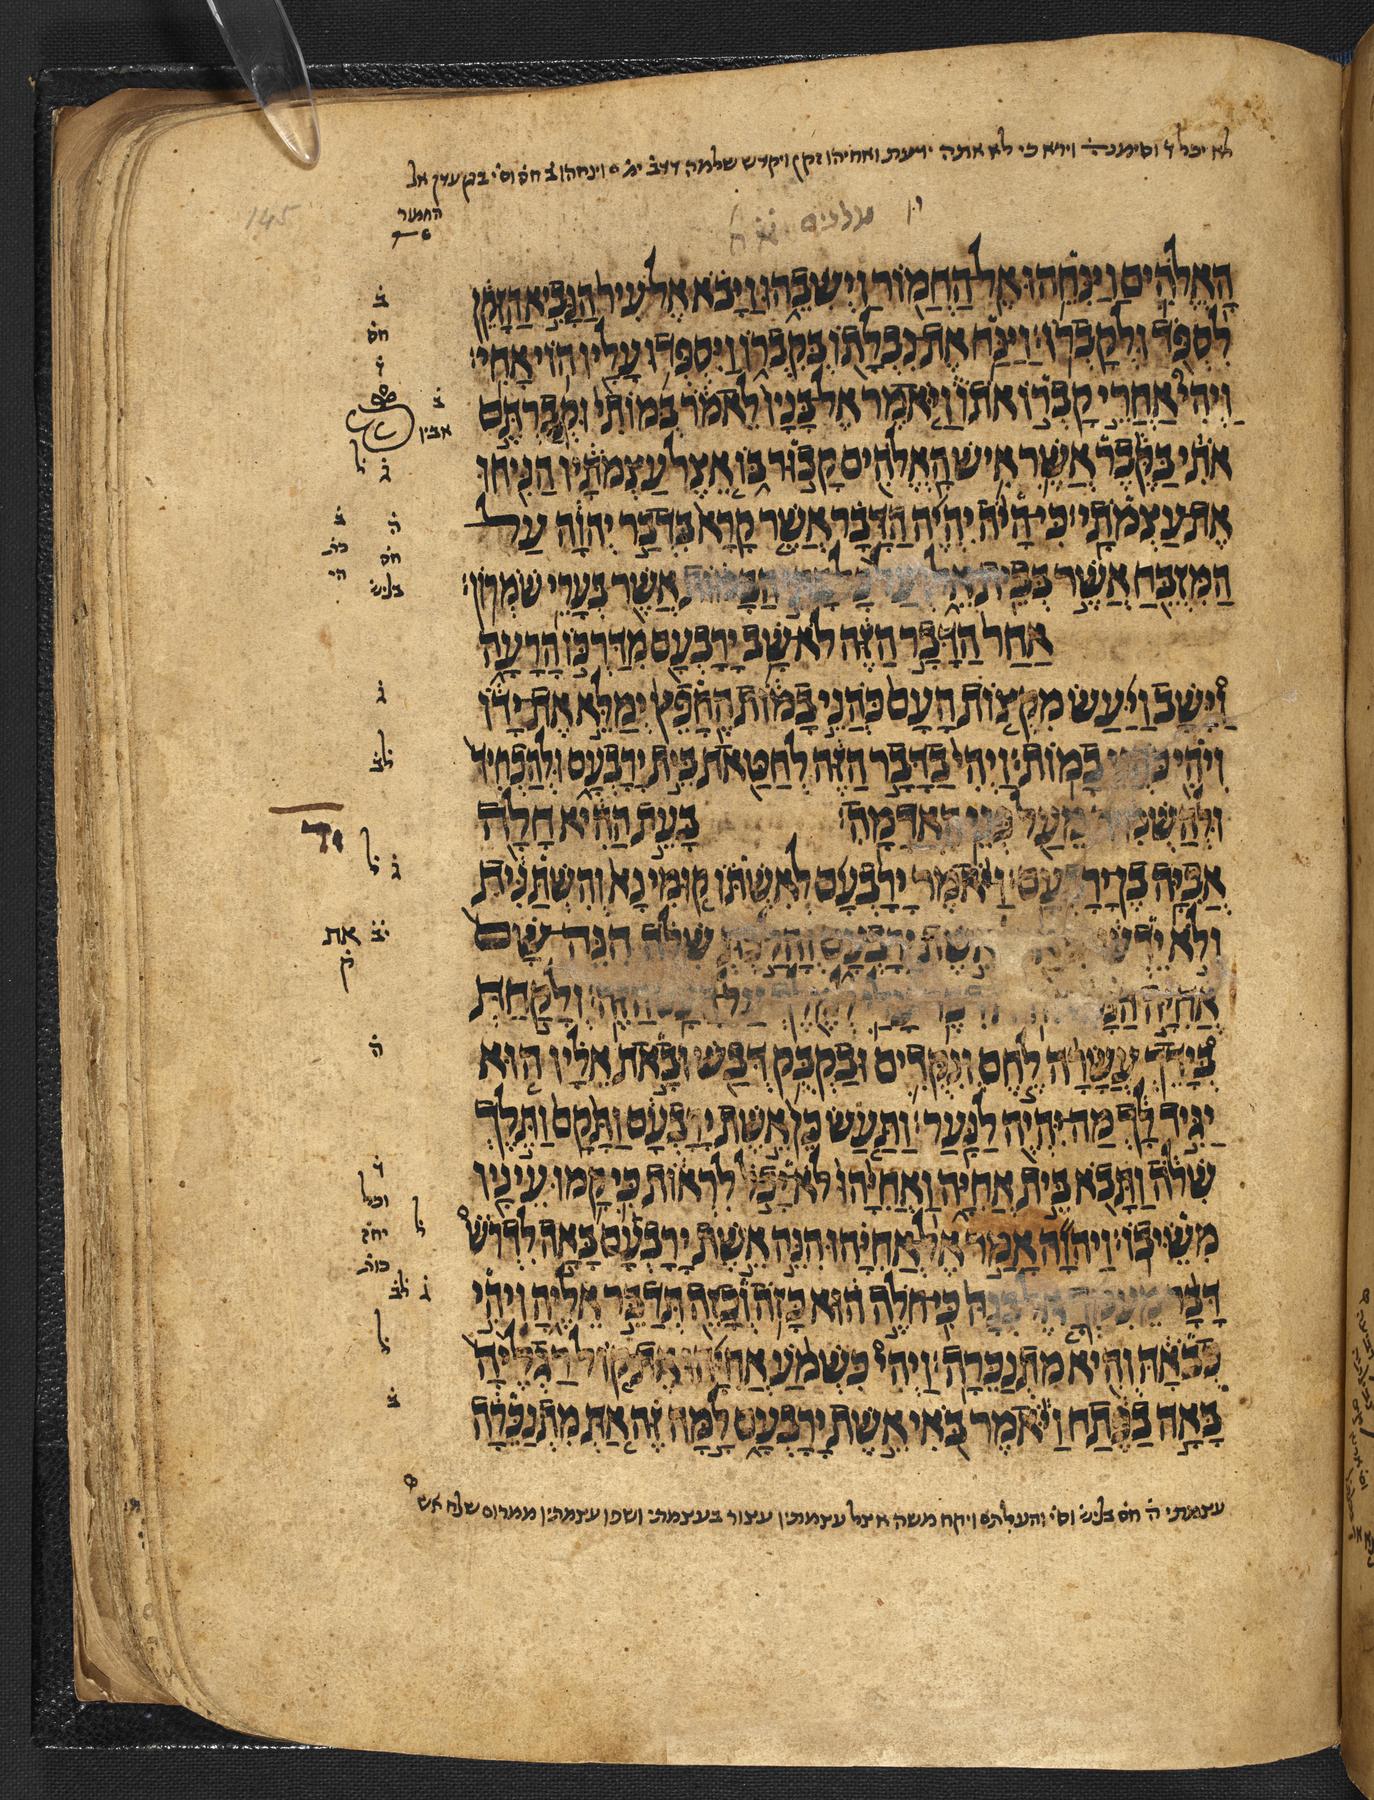 לא יכל ד וסימנה וירא כי לא אתה ידעת ואחיהו זקן ויקדש שלמה דדב ימ וינחהו ב חס וס בגן עדן אל
החמור
145
מלכים א
הָאֱלֹהִים וַיַּנִּחֵהוּ אֶל הַחֲמוֹר וַיְשִׁיבֵהוּ וַיָּבֹא אֶל עִיר הַנָּבִיא הַזָּקֵן
לִסְפֹּד וּלְקָבְרוֹ׃ וַיַּנַּח אֶת נִבְלָתוֹ בְּקִבְרוֹ וַיִּסְפְּדוּ עָלָיו הוֹי אָחִי׃
וַיְהִי אַחֲרֵי קָבְרוֹ אֹתוֹ וַיֹּאמֶר אֶל בָּנָיו לֵאמֹר בְּמוֹתִי וּקְבַרְתֶּם
אֹתִי בַּקֶּבֶר אֲשֶׁר אִישׁ הָאֱלֹהִים קָבוּר בּוֹ אֵצֶל עַצְמֹתָיו הַנִּיחוּ
אֶת עַצְמֹתָי׃ כִּי הָיֹה יִהְיֶה הַדָּבָר אֲשֶׁר קָרָא בִּדְבַר יְהוָה עַל
הַמִּזְבֵּחַ אֲשֶׁר בְּבֵית אֵל וְעַל כָּל בָּתֵּי הַבָּמוֹת אֲשֶׁר בְּעָרֵי שֹׁמְרוֹן׃
אַחַר הַדָּבָר הַזֶּה לֹא שָׁב יָרָבְעָם מִדַּרְכּוֹ הָרָעָה
וַיָּשָׁב וַיַּעַשׂ מִקְצוֹת הָעָם כֹּהֲנֵי בָמוֹת הֶחָפֵץ יְמַלֵּא אֶת יָדוֹ
וִיהִי כֹּהֲנֵי בָמוֹת׃ וַיְהִי בַּדָּבָר הַזֶּה לְחַטַּאת בֵּית יָרָבְעָם וּלְהַכְחִיד
וּלְהַשְׁמִיד מֵעַל פְּנֵי הָאֲדָמָה׃ בָּעֵת הַהִיא חָלָה
אֲבִיָּה בֶן יָרָבְעָם׃ וַיֹּאמֶר יָרָבְעָם לְאִשְׁתּוֹ קוּמִי נָא וְהִשְׁתַּנִּית
וְלֹא יֵדְעוּ אֵשֶׁת יָרָבְעָם וְהָלַכְתְּ שִׁלֹה הִנֵּה שָׁם
אֲחִיָּה הַנָּבִיא הוּא דִבֶּר עָלַי לְמֶלֶךְ עַל הָעָם הַזֶּה׃ וְלָקַחַתְּ
בְּיָדֵךְ עֲשָׂרָה לֶחֶם וְנִקֻּדִים וּבַקְבֻּק דְּבַשׁ וּבָאת אֵלָיו הוּא
יַגִּיד לָךְ מַה יִּהְיֶה לַנָּעַר׃ וַתַּעַשׂ כֵּן אֵשֶׁת יָרָבְעָם וַתָּקָם וַתֵּלֶךְ
שִׁלֹה וַתָּבֹא בֵּית אֲחִיָּה וַאֲחִיָּהוּ לֹא יָכֹל לִרְאוֹת כִּי קָמוּ עֵינָיו
מִשֵּׂיבוֹ׃ וַיהוָה אָמַר אֶל אֲחִיָּהוּ הִנֵּה אֵשֶׁת יָרָבְעָם בָּאָה לִדְרֹשׁ
דָּבָר מֵעִמְּךָ אֶל בְּנָהּ כִּי חֹלֶה הוּא כָּזֹה וְכָזֶה תְּדַבֵּר אֵלֶיהָ וִיהִי
כְבֹאָהּ וְהִיא מִתְנַכֵּרָה׃ וַיְהִי כִשְׁמֹעַ אֲחִיָּהוּ אֶת קוֹל רַגְלֶיהָ
בָּאָה בַפֶּתַח וַיֹּאמֶר בֹּאִי אֵשֶׁת יָרָבְעָם לָמָּה זֶּה אַתְּ מִתְנַכֵּרָה
ב
חס
ב
אביו
ג ל
ה ב
חס
בליש
ג
יד
ג ל
יב את
ק
ה
ל
ג
ל
ב
עצמתי ה חס בליש וס והעלתם ויקח משה אצל עצמתיו עצור בעצמתי ושפו עצמתיו ממרום שלח אש